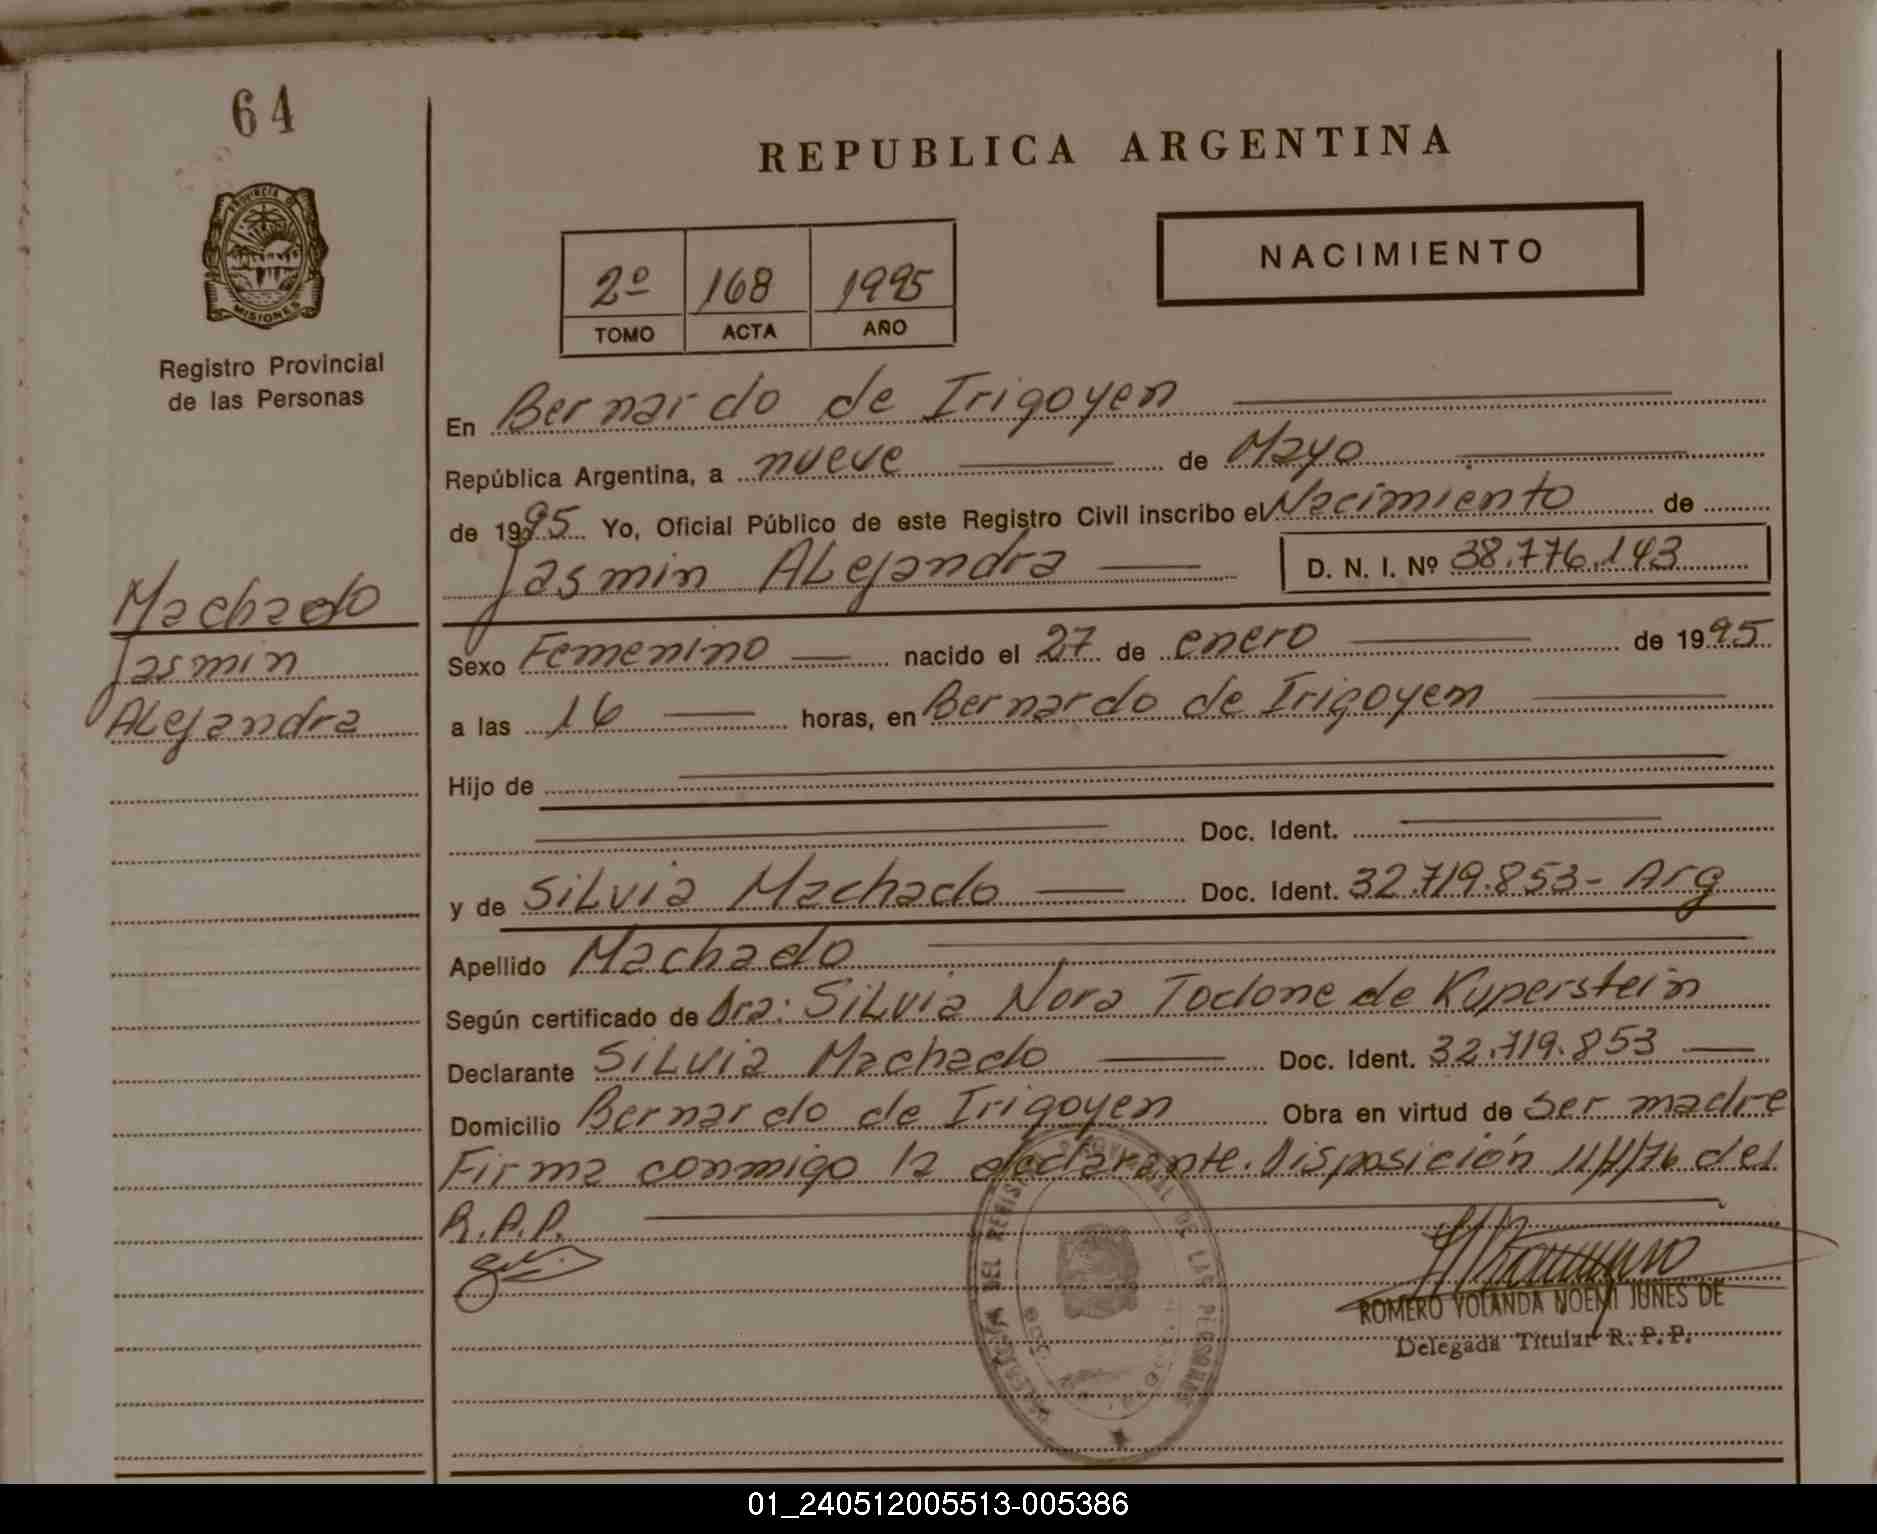 64
PROVINCIA DE
MISIONES
Registro Provincial
de las Personas
Machado
Jasmin
Alejandra
REPUBLICA ARGENTINA
NACIMIENTO
2º 168 1995
TOMO ACTA AÑO
En Bernardo de Irigoyen
República Argentina, a nueve de Mayo
de 1995 Yo, Oficial Público de este Registro Civil inscribo el Nacimiento de
Jasmin Alejandra D. N. I. Nº 38.776.143
Sexo Femenino nacido el 27 de enero de 1995
a las 16 horas, en Bernardo de Irigoyen
Hijo de
Doc. Ident.
y de Silvia Machado Doc. Ident. 32.719.853- Arg
Apellido Machado
Según certificado de Dra: Silvia Nora Todone de Kuperstein
Declarante Silvia Machado Doc. Ident. 32.719.853
Domicilio Bernardo de Irigoyen Obra en virtud de ser madre
Firma conmigo la declarante. Disposición 11/7/76 del
R.P.P.
DEL REGISTRO PROVINCIAL DE LAS PERSONAS
ROMERO YOLANDA NOEMI JUNES DE
Delegada Titular R. P. P.
01_240512005513-005386